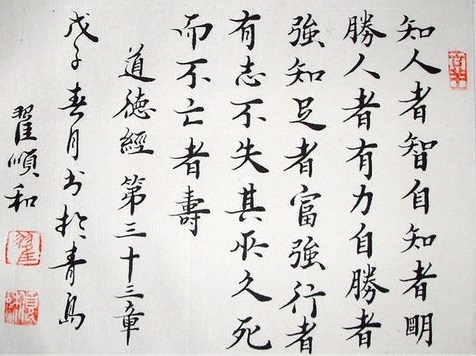 知人者智自知者明
勝人者有力自勝者
強知足者富強行者
有志不失其所久死
而不亡者壽
道德經第三十三章
戊子春月书於青島
翟順和